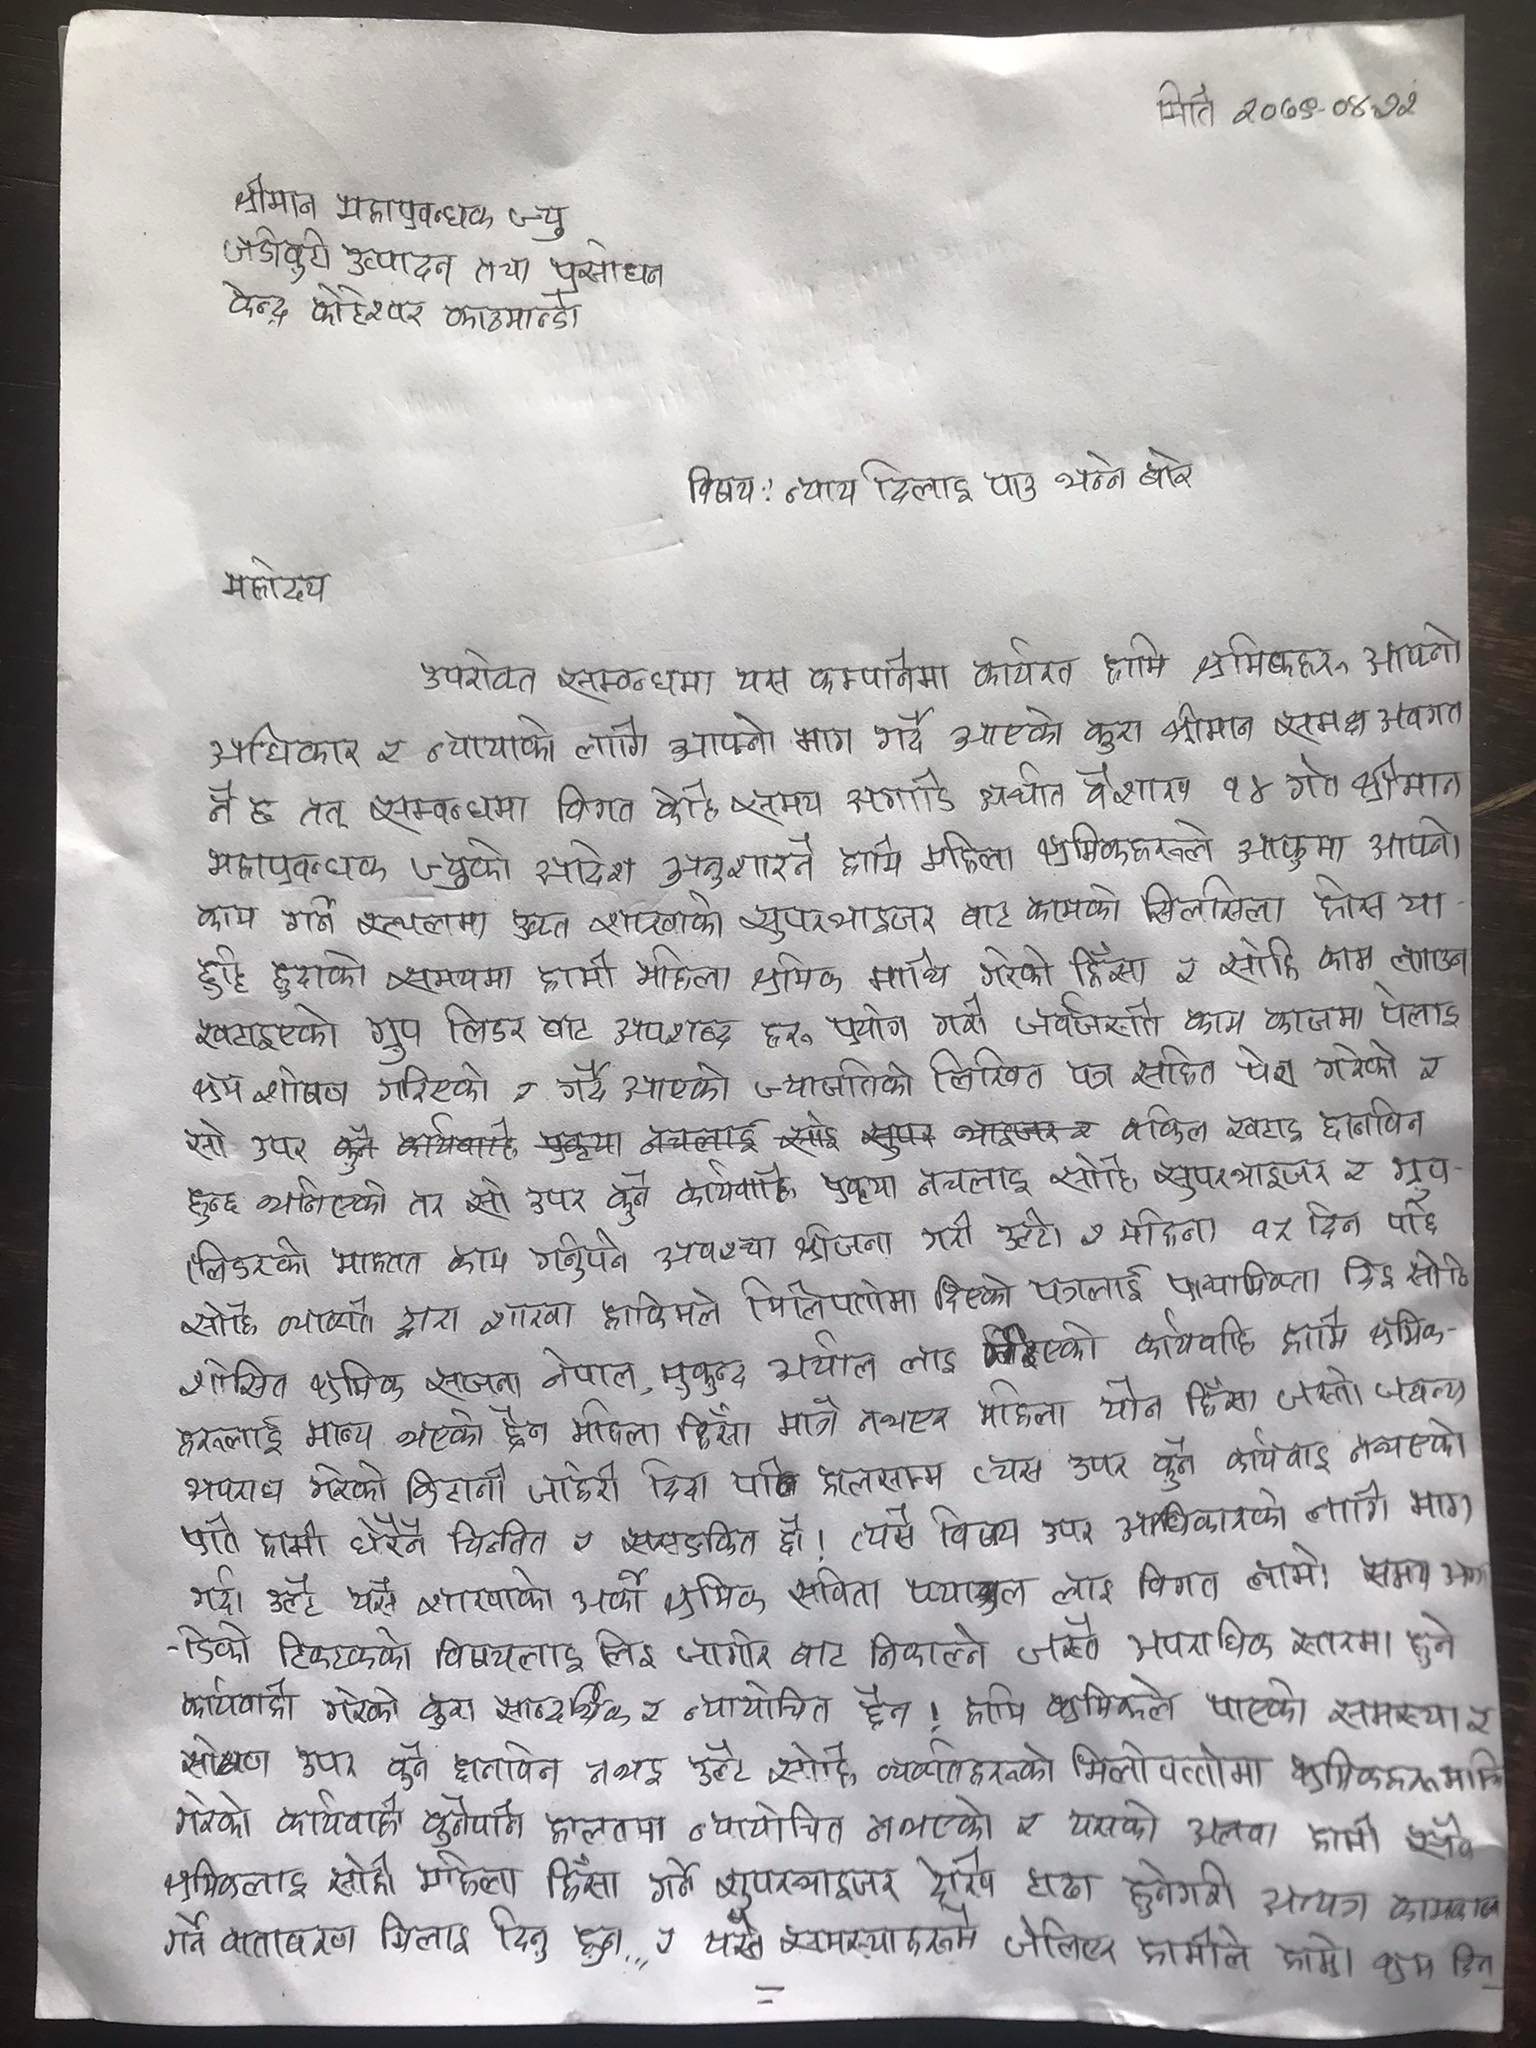 मिति २०७९-०४-२२
श्रीमान महाप्रबन्धक ज्यु
जडीबुटी उत्पादन तथा प्रसोधन
केन्द्र कोटेश्वर काठमान्डौ
विषय: न्याय दिलाइ पाउ भन्ने बारे
महोदय
उपरोक्त सम्बन्धमा यस कम्पनिमा कार्यरत हामि श्रमिकहरु आफ्नो
अधिकार र न्यायाको लागि आफ्नो माग गर्दै आएको कुरा श्रीमान समक्ष अवगत
नै छ तत् सम्बन्धमा विगत केहि समय अगाडि अर्थात वैशाख १४ गते श्रीमान
महाप्रबन्धक ज्युको आदेश अनुशारनै हामि महिला श्रमिकहरुले आफुमा आफ्नो
काम गर्ने स्थलमा उक्त शाखाको सुपरभाइजर बाट कामको सिलसिला होस या
हुदाको समयमा हामी महिला श्रमिक माथि गरेको हिँसा र सोहि काम लगाउन
खटाइएको ग्रुप लिडर बाट अपशब्द हरु प्रयोग गरी जर्वजस्ति काम काजमा पेलाइ
श्रम शोषण गरिएको र गर्दै आएको ज्याजतिको लिखित पत्र सहित पेश गरेको र
सो उपर कुनै कार्यवाहि प्रकृया नचलाई सोइ सुपर भाइजर र वकिल खटाइ छानविन
हुन्छ भनिएको तर सो उपर कुनै कार्यवाहि प्रकृया नचलाइ सोहि सुपरभाइजर र ग्रुप-
लिडरको मार्फत काम गर्नुपर्ने अवस्था श्रीजना गरी उल्टो २ महिना १५ दिन पछि
सोहि व्यक्ति द्वारा शाखा हाकिमले मिलिपतोमा दिएको पत्रलाई प्राथामिक्ता दिइ सोहि
शोसित श्रमिक सजना नेपाल, मुकुन्द अर्याल लाइ गरिएको कार्यवाहि हामि श्रमिक-
हरुलाई मान्य भएको छैन महिला हिँसा मात्रै नभएर महिला यौन हिँसा जस्तो जघन्य
अपराध गरेको किटानी जाहेरी दिदा पनि हालसम्म त्यस उपर कुनै कार्यवाइ नभएको
प्रति हामी धेरैनै चिन्तित र ससङकित छौ! त्यसै विषय उपर अधिकारको लागि माग
गर्दा उल्टै यसै शाखाको अर्को श्रमिक सविता प्याकुल लाइ विगत लामो समय अगा
-डिको टिकटकको विषयलाइ लिइ जागीर बाट निकाल्ने जस्तै अपराधिक स्तरमा हुने
कार्यवाही गरेको कुरा सान्दर्भिक र न्यायोचित छैन! हामि श्रमिकले पाएको समस्या र
सोषण उपर कुनै छानविन नभइ उल्टै सोहि व्यक्तिहरुको मिलोपत्तोमा श्रमिकहरु माथि
गरेको कार्यवाही कुनैपनि हालतमा न्यायोचित नभएको र यसको अलवा हामी सबै
श्रमिकलाइ सोही महिला हिँसा गर्ने सुपरभाइजर देखि टाढा हुनेगरी अन्यत्र कामकाज
गर्ने वातावरण मिलाइ दिनु हुन ,,, र यस्तै समस्याहरुमै जेलिएर हामीले हाम्रो श्रम दिन
=